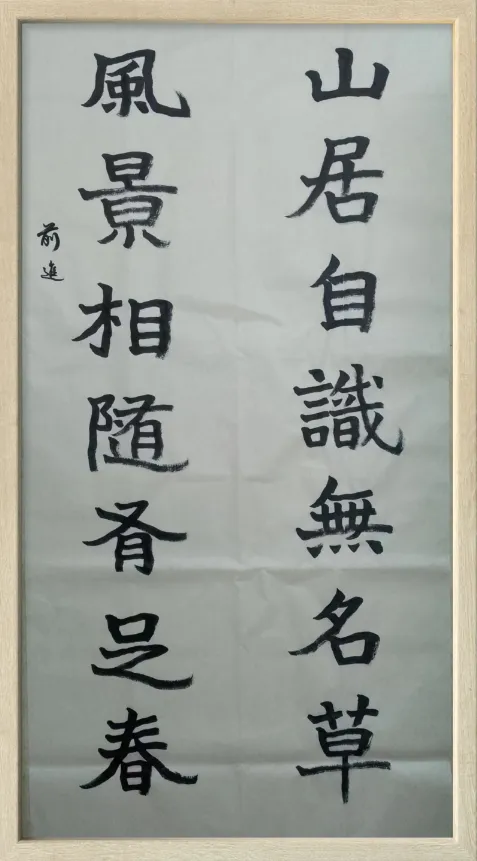 山居自識無名草
風景相隨肴足春
前進